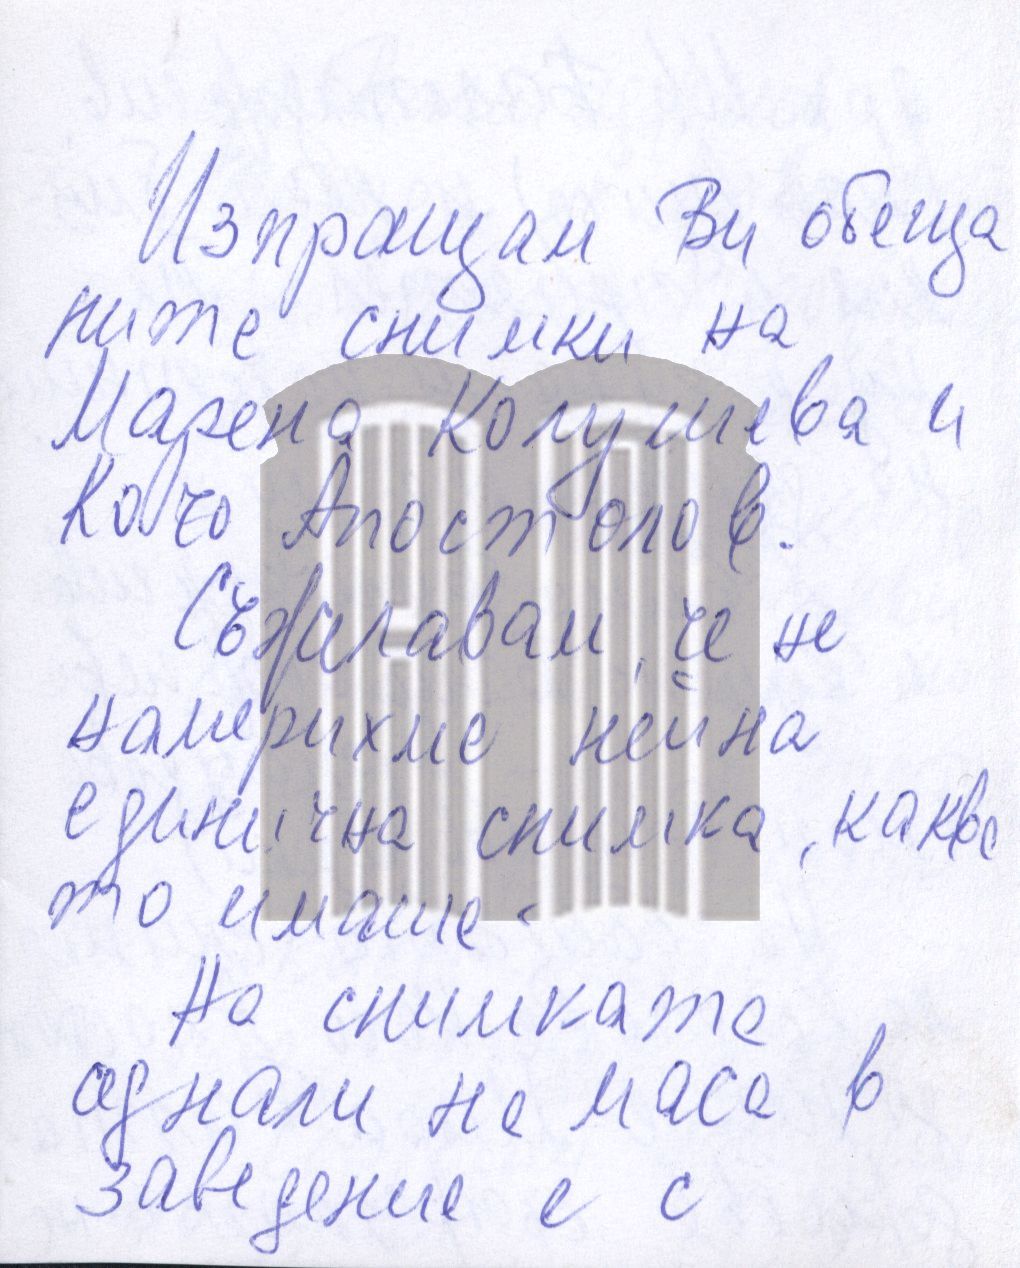 Изпращам Ви обеща
ните снимки на
Марена Колушева и
Кочо Апостолов.
Съжелавам, че не
намерихме нейна
единична снимка, какво
то имаше.
На снимката
седнали на маса в
заведение е с